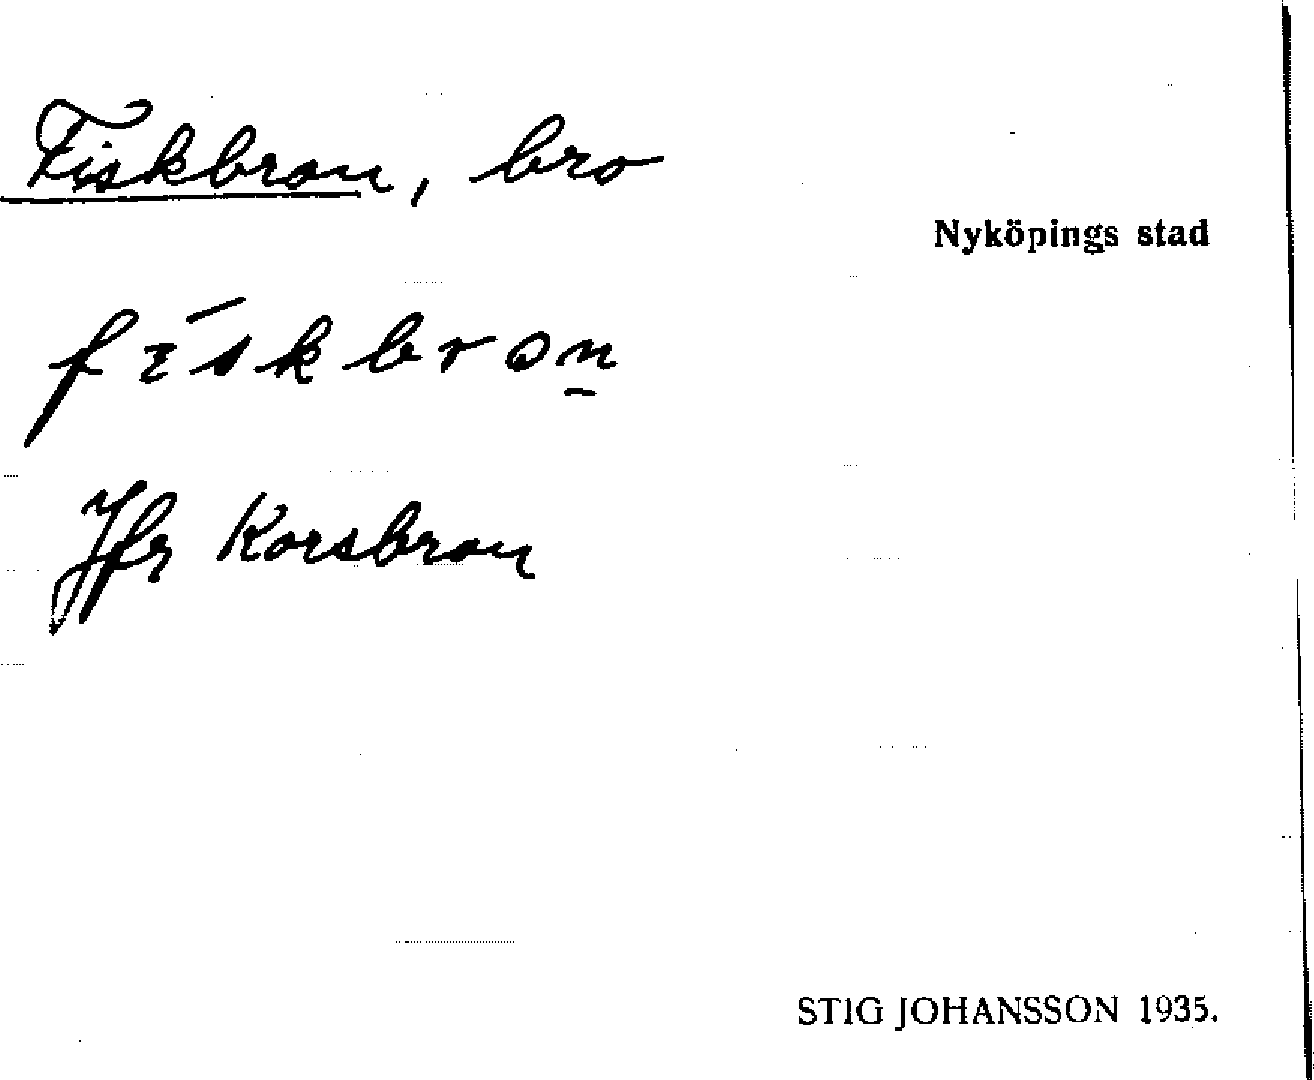 Fiskbron, bro
Nyköpings stad
fískbron̲
Jfr Korsbron
STIG JOHANSSON 1935.